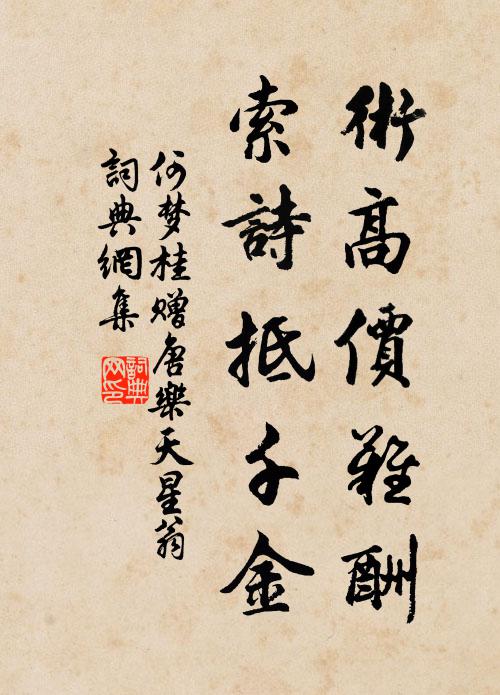 術高價難酬
索詩抵千金
何梦桂贈唐樂天星翁
詞典網集
詞典网印